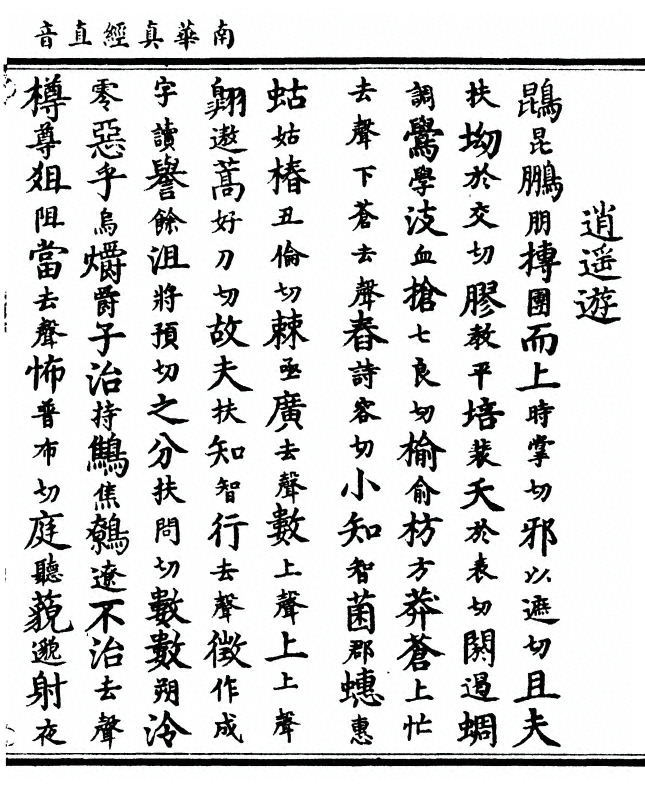 南華真經直音
逍遥遊
鵾昆鵬朋摶團而上時掌切邪以遮切且夫
扶坳於交切膠教平培裴夭於表切閼遏蜩
調鷽學決血搶七良切榆俞枋方莽蒼上忙
去聲下蒼去聲舂詩容切小知智菌郡蟪惠
蛄姑椿丑倫切棘亟廣去聲數上聲上上聲
翺遨蒿好刀切故夫扶知智行去聲徵作成
字讀譽餘沮將預切之分扶問切數數朔泠
零惡乎烏爝爵子治持鷦焦鷯遼不治去聲
樽尊狙阻當去聲怖普布切庭聽藐邈射夜